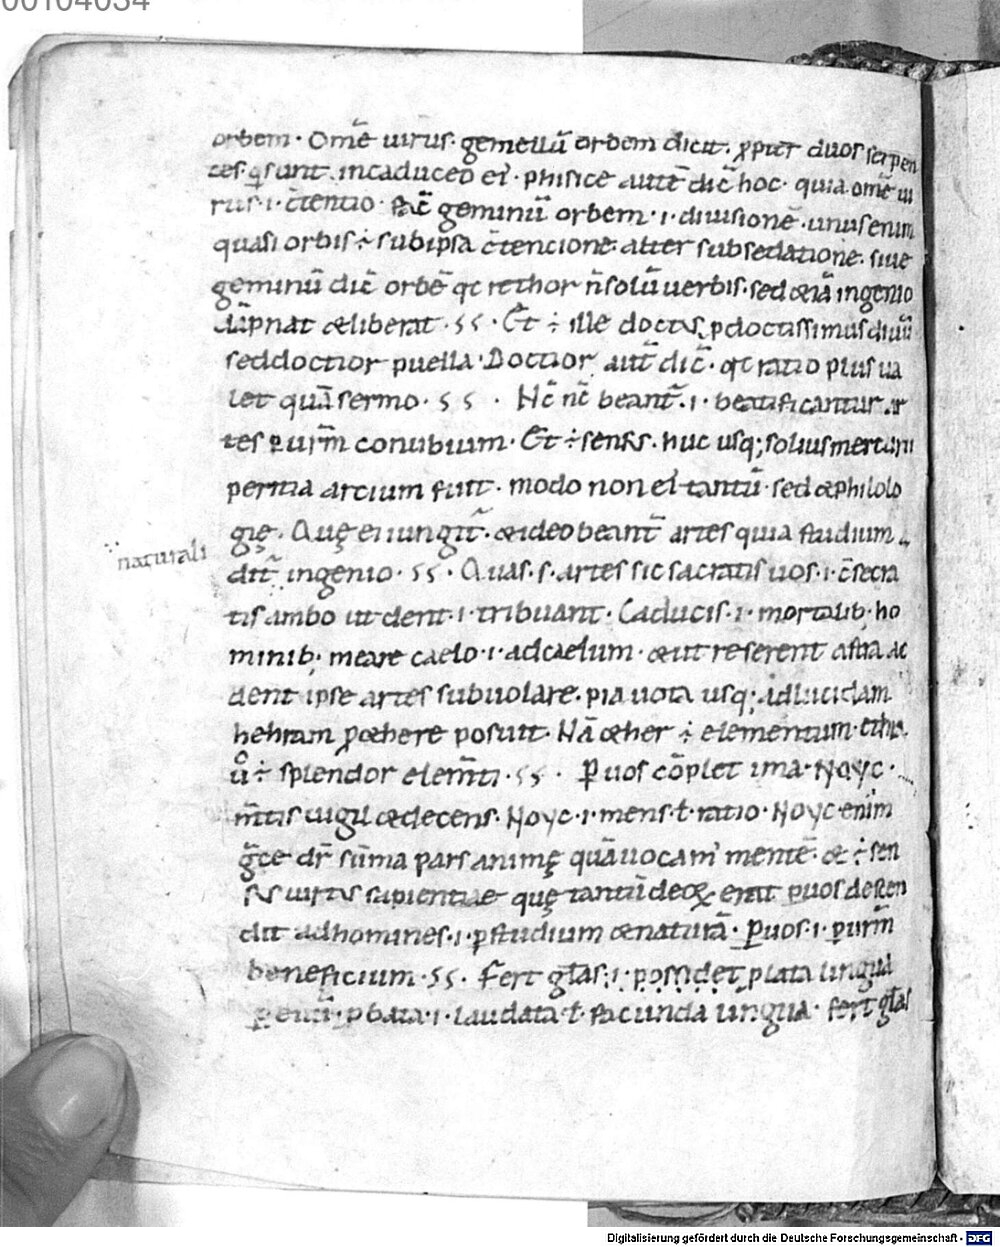 00104034
orbem · Om̄e uirus · gemellū orbem dicit · ꝓpter duos serpen
tes · q̄ sunt incaduceo ei · phisice autē dic̄ hoc · quia om̄e ui
rus · i · c̄tentio · fac̄ geminū orbem · i · diuisionē · unus enim
quasi orbis ÷ sub ipsa c̄tencione · alter sub sedatione · siue
geminū dic̄ orbē qc rethor n̄ solū uerbis · sed & iā ingenio
dāpnat & liberat · ss · Et ÷ ille doctus ꝓ doctissimus diuū
sed doctior puella · Doctior aut̄ dic̄ · qc ratio plus ua
let quā sermo · ss · Hc̄ nc̄ beant̄ · i · beatificantur ar
tes ꝑ ur̄m conubium · Et ÷ sensus · huc usq; solius mercurii
peritia arcium fuit · modo non ei tantū · sed & philolo
gię · Quę ei iungit̄ · & ideo beant̄ artes quia studium
naturali
dit̄ ingenio · ss · Quas · s · artes sic sacratis uos · i · c̄secra
tis ambo ut dent · i · tribuant · Caducis · i · mortalib; ho
minib; meare caelo · i · ad caelum · & ut reserent astra ac
dent ipse artes subuolare · pia uota usq; ad lucidam
hehram ꝓ &here posuit · Nā &her ÷ elementum · ethra
ů ÷ splendor elem̄ti · ss · ꝑ uos cōplet ima · Noyc ·
m̄tis uigil & decens · Noyc · i · mens · ł · ratio · Noyc enim
ḡce dr̄ sūma pars animę quā uocam' mentē · & ÷ sen
sus uirtus sapientiae quę tantū deoꝝ erat ꝑ uos descen
dit ad homines · i · ꝑ studium & naturā · ꝑ uos · i · ꝑ ur̄m
beneficium · ss · Fert gl̄as · i · possidet ꝓlata lingua
ꝓbata · i · laudata · ł · facunda lingua · fert gl̄as
Digitalisierung gefördert durch die Deutsche Forschungsgemeinschaft - DFG